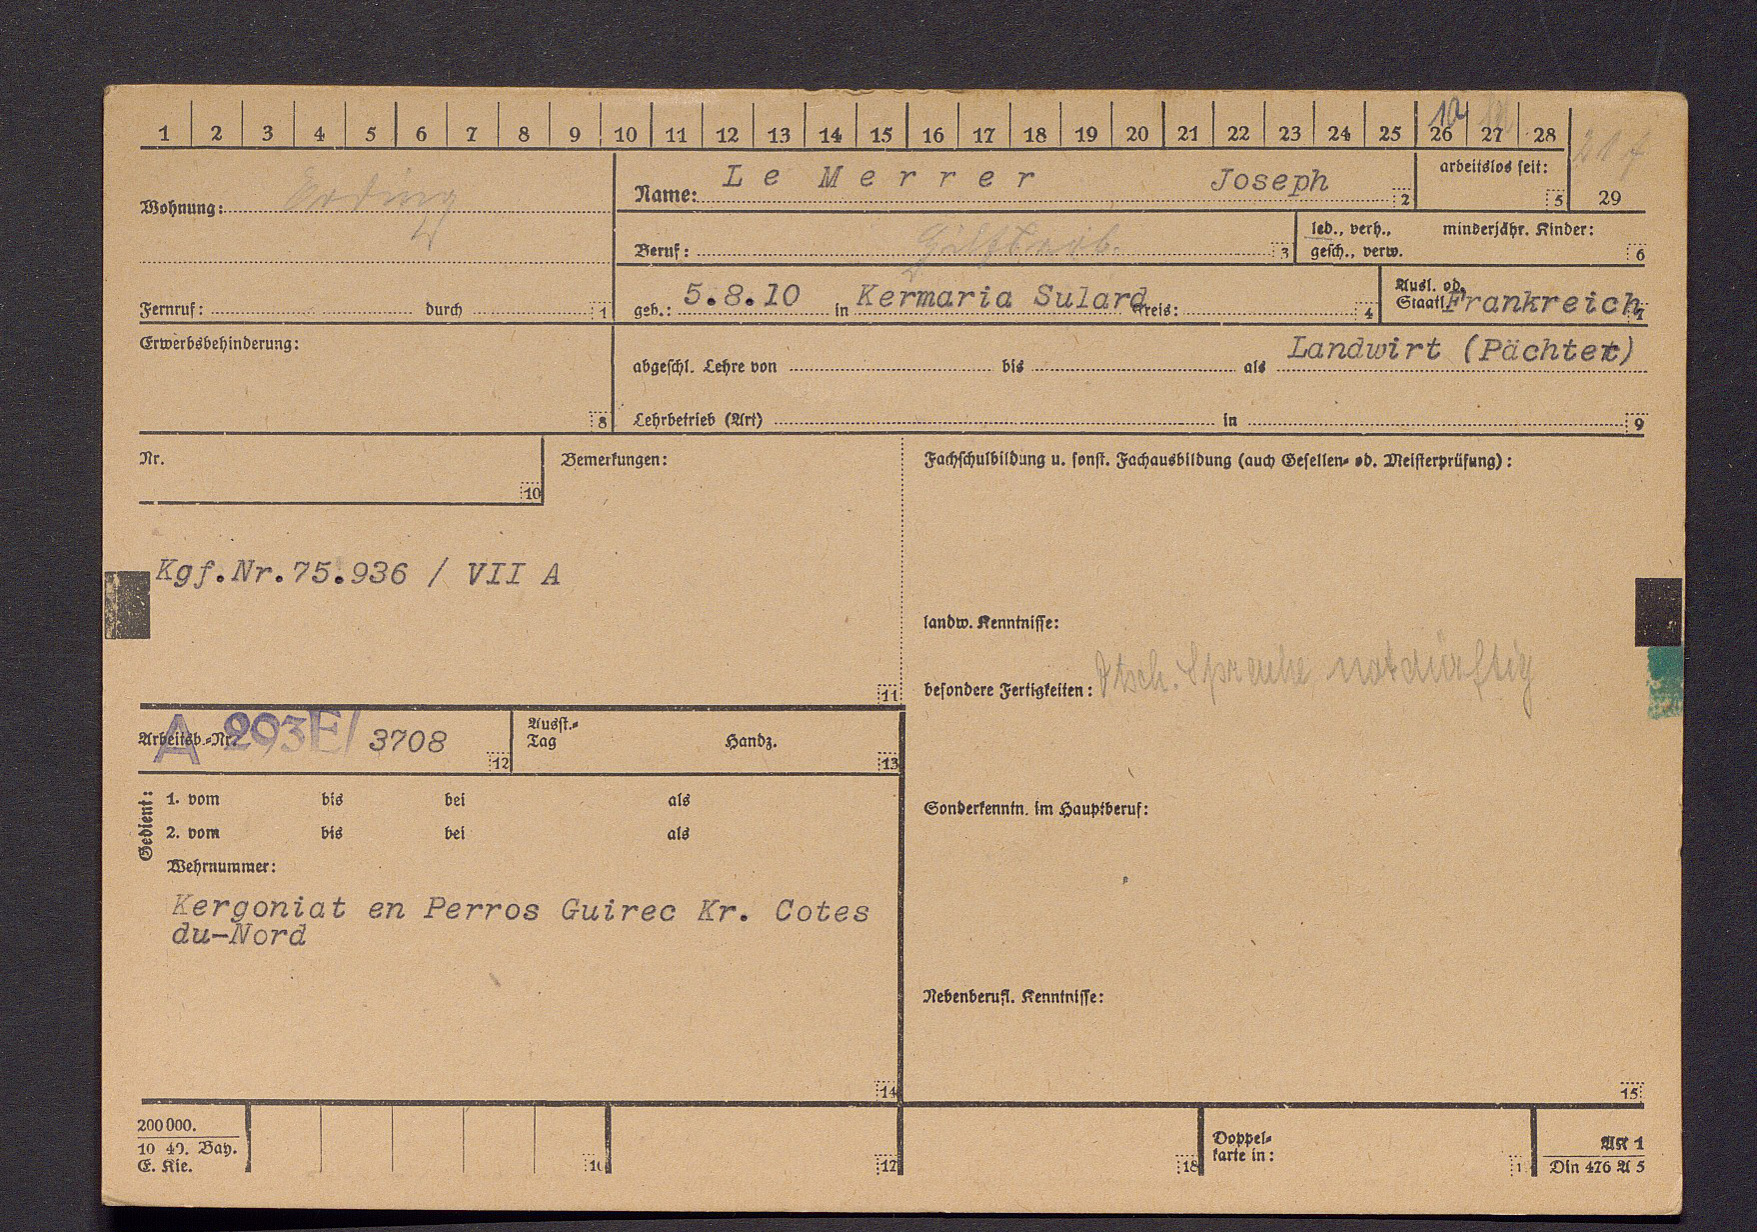 1 2 3 4 5 6 7 8 9 10 11 12 13 14 15 16 17 18 19 20 21 22 23 24 25 26 27 28
10
Wohnung: Erding
Name: Le Merrer Joseph 2
arbeitslos seit: 5
29
Beruf: Hilfsarb. 3
led., verh., minderjähr. Kinder:
gesch., verw. 6
Fernruf: durch 1
geb.: 5.8.10 in Kermaria Sulard Kreis: 4
Ausl. od.
Staatl. Frankreich 7
Erwerbsbehinderung: 8
abgeschl. Lehre von bis als Landwirt (Pächter)
Lehrbetrieb (Art) in 9
Nr. 10
Bemerkungen:
Fachschulbildung u. sonst. Fachausbildung (auch Gesellen- od. Meisterprüfung):
Kgf.Nr.75.936 / VII A
landw. Kenntnisse:
besondere Fertigkeiten: Dtsch. Sprache notdürftig
11
Arbeitsb.-Nr. A 293E/ 3708 12
Ausst.-
Tag Handz. 13
Gedient:
1. vom bis bei als
2. vom bis bei als
Sonderkenntn. im Hauptberuf:
Wehrnummer:
Kergoniat en Perros Guirec Kr. Cotes
du-Nord
Nebenberufl. Kenntnisse:
14
15
200000.
10 40. Bay.
E. Kie.
16
17
18
Doppel-
karte in:
1
AK 1
Din 476 A 5